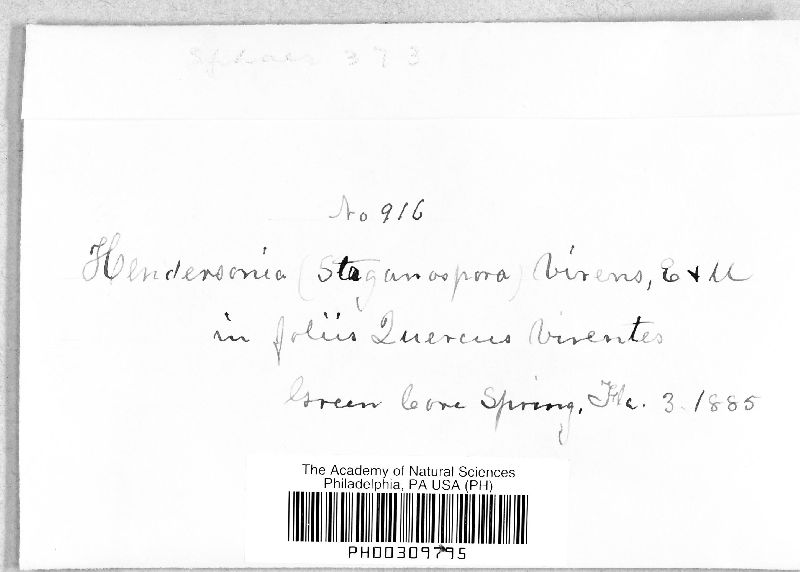 Sphaer 373
No 916
Hendersonia (Staganospora) Virens, E & M
in foliis Quercus Virentes
Green Cove Spring, Fla. 3. 1885
The Academy of Natural Sciences
Philadelphia, PA USA (PH)
PH00309795